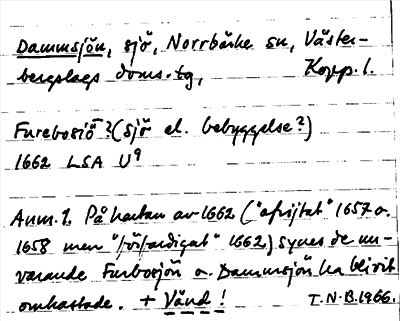 Dammsjön, sjö, Norrbärke sn, Väster-
bergslags doms.tg, Kopp. l.
Furebosiö? (sjö el. bebyggelse?)
1662 LSA U9
Anm. 1. På kartan av 1662 ("afrijtat" 1657 o.
1658 men "förfärdigat" 1662) synes de nu-
varande Furbosjön o. Dammsjön ha blivit
omkastade. + Vänd!
T.N.B. 1966.